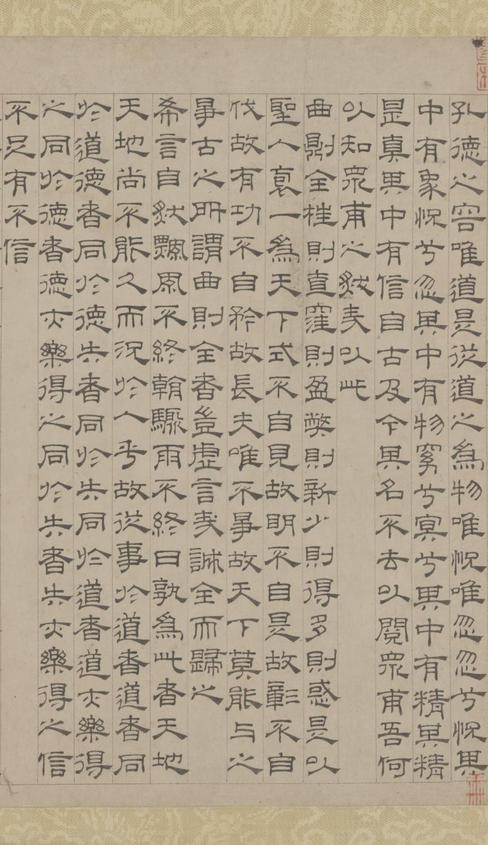 孔德之容唯道是從道之為物唯怳唯忽忽兮怳其
中有象怳兮忽其中有物窈兮冥兮其中有精其精
甚真其中有信自古及今其名不去以閱眾甫吾何
以知眾甫之然哉以此
曲則全枉則直窪則盈弊則新少則得多則惑是以
聖人袌一為天下式不自見故明不自是故彰不自
伐故有功不自矜故長夫唯不爭故天下莫能与之
爭古之所謂曲則全者豈虛言哉誠全而歸之
希言自然飄風不終朝驟雨不終日孰為此者天地
天地尚不能久而況於人乎故從事於道者道者同
於道德者同於德失者同於失同於道者道亦樂得
之同於德者德亦樂得之同於失者失亦樂得之信
不足有不信